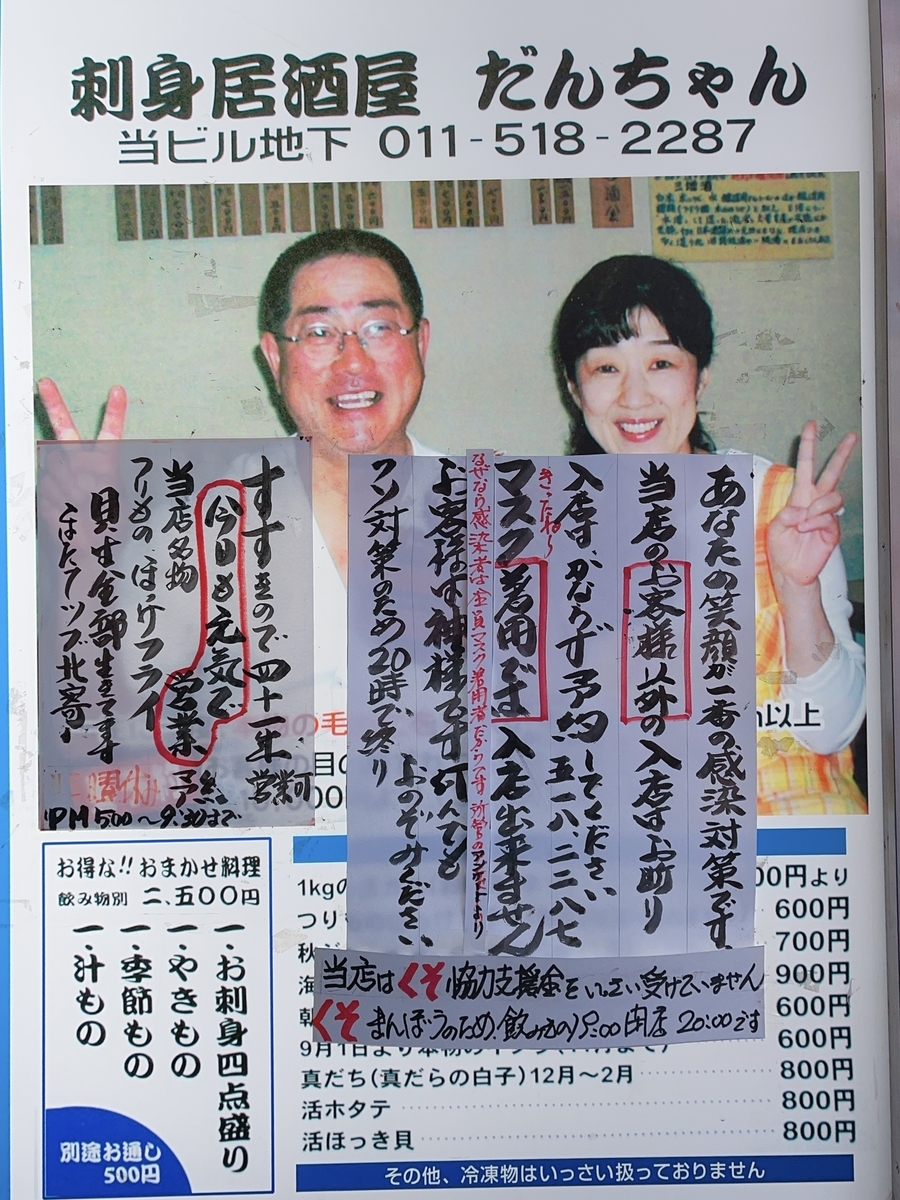 刺身居酒屋 だんちゃん
当ビル地下 011-518-2287
あなたの笑顔が一番の感染対策です
当店のお客様以外の入店はお断り
入店時かならず予約してください 五一八、二二八七
きったね〜
マスク着用では入店出来ません
なぜなら感染者は全員マスク着用者だからです 所管のアンケートより
お客様は神様です何んでも
おのぞみください
クソ対策のため20時で終り
すすきので四十一年営業
今りも元気で営業
当店名物
つりもの ほっけフライ
貝は全部生きてます
ほたてツブ北寄
PM 5:00〜9:30まで
当店はくそ協力支援金をいっさい受けていません
くそまんぼうのため、飲みもの19:00 閉店 20:00です
の毛
以上
お得な!! おまかせ料理
飲み物別 二、五〇〇円
一・お刺身四点盛り
一・やきもの
一・季節もの
一・汁もの
別途お通し
500円
1kgの
00円より
つり
600円
秋
700円
海
900円
朝
600円
9月1日より本物の
600円
真だち(真だらの白子)12月〜2月 800円
活ホタテ 800円
活ほっき貝 800円
その他、冷凍物はいっさい扱っておりません